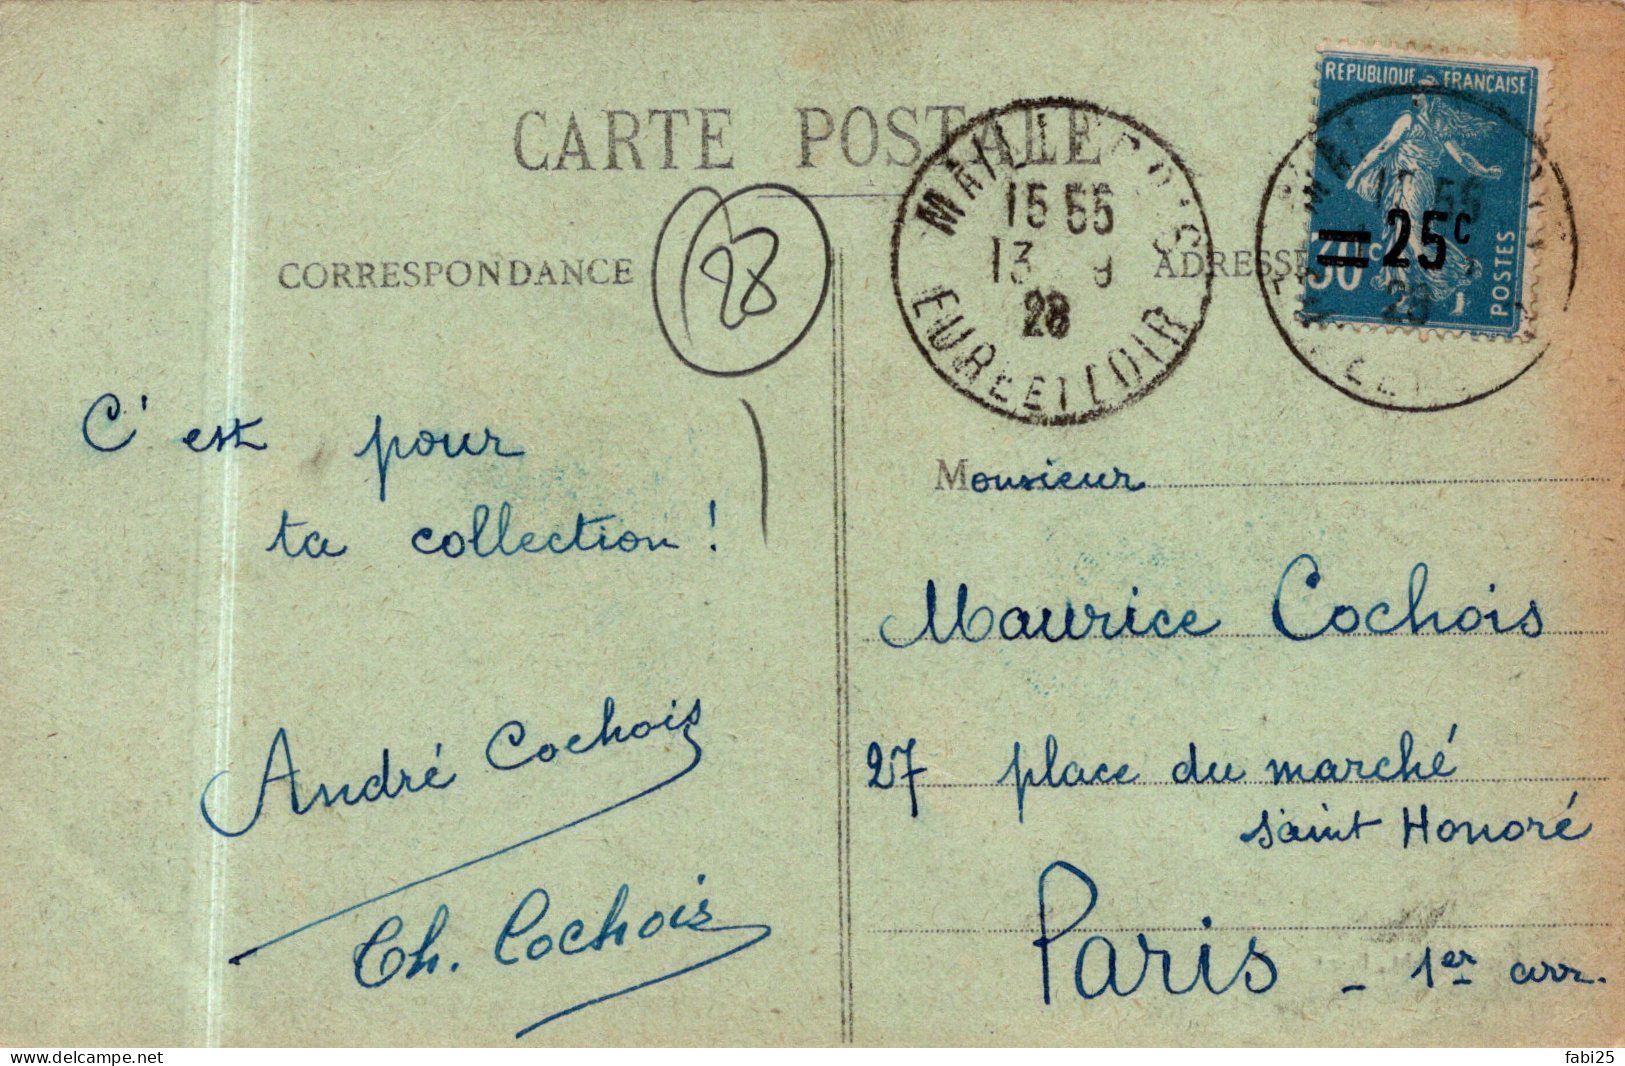 CARTE POSTALE
CORRESPONDANCE
28
C'est pour
ta collection !
André Cochois
Ch. Cochois
15 55
13 9
28
EURE ET LOIR
REPUBLIQUE FRANÇAISE
30c
25c
POSTES
ADRESSE
Monsieur
Maurice Cochois
27 place du marché
saint Honoré
Paris - 1er arr.
www.delcampe.net
fabi25